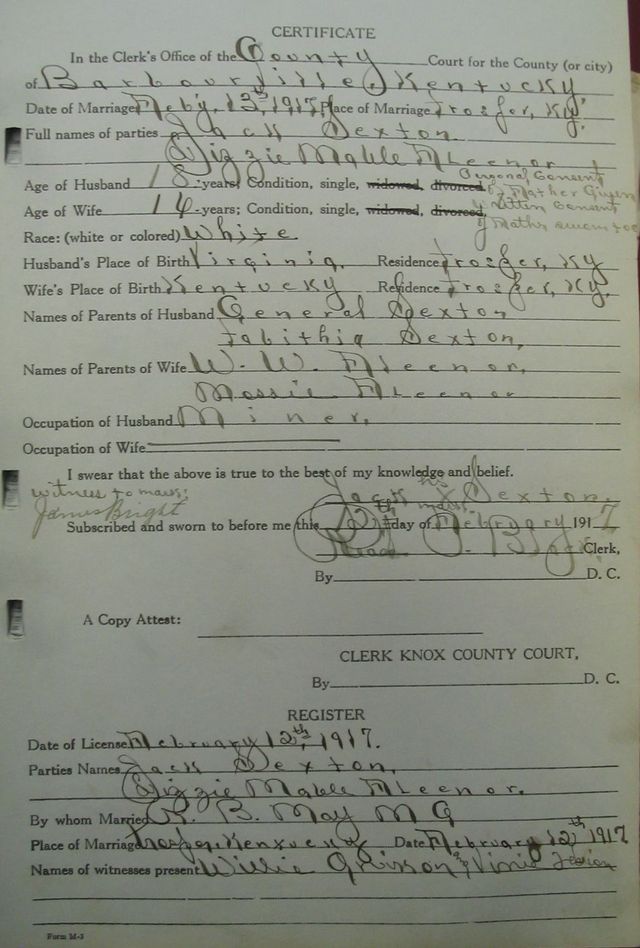 CERTIFICATE
In the Clerk's Office of the County Court for the County (or city)
of Barbourville, Kentucky
Date of Marriage Feb'y, 13th, 1917, Place of Marriage Trosper, Ky.
Full names of parties Jack Sexton
Lizzie Mable Fleenor
Age of Husband 18-years; Condition, single, widowed, divorced Personal Consent
by Father Given
Age of Wife 14-years; Condition, single, widowed, divorced, Written Consent
of Mother sworn to
Race: (white or colored) White
Husband's Place of Birth Virginia, Residence Trosper, Ky
Wife's Place of Birth Kentucky Residence Trosper, Ky.
Names of Parents of Husband General Sexton
Tabithia Sexton,
Names of Parents of Wife W. W. Fleenor,
Mossie Fleenor
Occupation of Husband Miner,
Occupation of Wife
I swear that the above is true to the best of my knowledge and belief.
his
Jack X Sexton.
witness to mark: mark
James Bright
Subscribed and sworn to before me this 12th day of February 1917
Read Clerk,
By D. C.
A Copy Attest:
CLERK KNOX COUNTY COURT.
By D. C.
REGISTER
Date of License February 12th, 1917.
Parties Names Jack Sexton,
Lizzie Mable Fleenor.
By whom Married R. B. May M G
Place of Marriage Trosper Kentucky Date February 12th 1917
Names of witnesses present Willie Grisson &
Form M-3